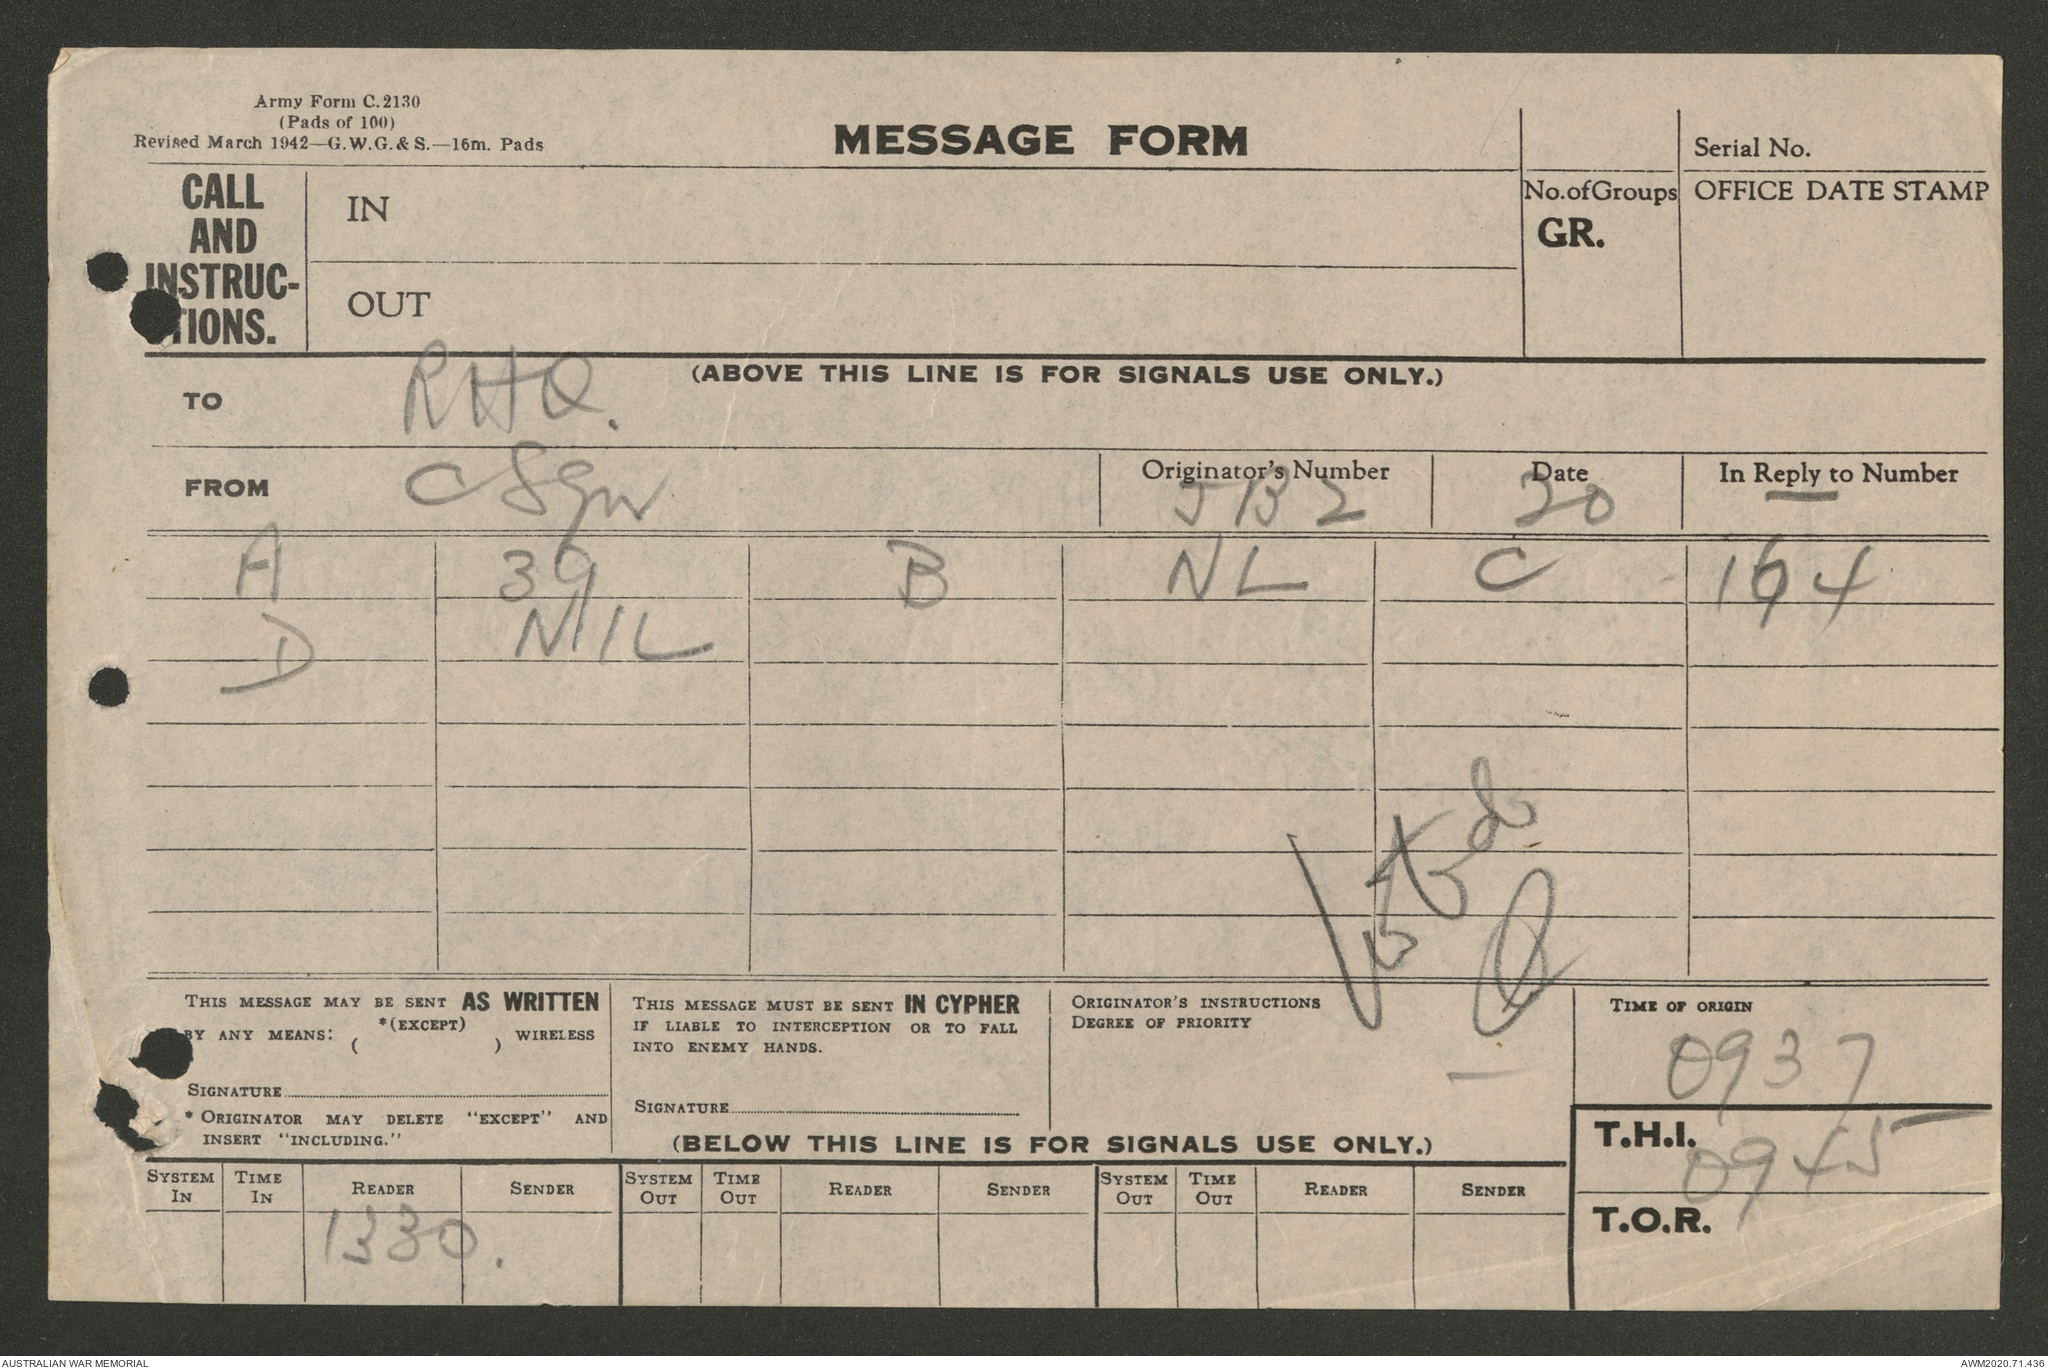 Army Form C.2130
(Pads of 100)
Revised March 1942—G.W.G.& S.—16m. Pads
MESSAGE FORM
Serial No.
CALL AND INSTRUC-TIONS.
IN
OUT
No. of Groups
GR.
OFFICE DATE STAMP
(ABOVE THIS LINE IS FOR SIGNALS USE ONLY.)
TO RHQ.
FROM C Sqn
Originator's Number JB2
Date 20
In Reply to Number —
A 39 B NL C 164
D NIL
THIS MESSAGE MAY BE SENT AS WRITTEN
BY ANY MEANS: *(EXCEPT) ( ) WIRELESS
SIGNATURE
* ORIGINATOR MAY DELETE "EXCEPT" AND
INSERT "INCLUDING."
THIS MESSAGE MUST BE SENT IN CYPHER
IF LIABLE TO INTERCEPTION OR TO FALL
INTO ENEMY HANDS.
SIGNATURE
ORIGINATOR'S INSTRUCTIONS
DEGREE OF PRIORITY
—
TIME OF ORIGIN
0937
T.H.I.
0945
T.O.R.
(BELOW THIS LINE IS FOR SIGNALS USE ONLY.)
SYSTEM IN TIME IN READER SENDER SYSTEM OUT TIME OUT READER SENDER SYSTEM OUT TIME OUT READER SENDER
1330.
AUSTRALIAN WAR MEMORIAL
AWM2020.71.436